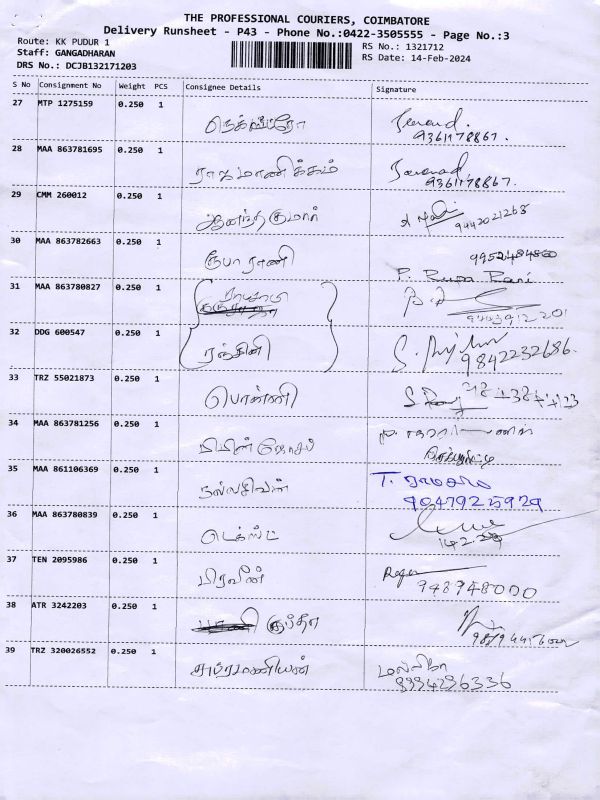 THE PROFESSIONAL COURIERS, COIMBATORE
Delivery Runsheet - P43 - Phone No.:0422-3505555 - Page No.:3
Route: KK PUDUR 1
RS No.: 1321712
Staff: GANGADHARAN
RS Date: 14-Feb-2024
DRS No.: DCJB132171203
S No Consignment No Weight PCS Consignee Details Signature
27 MTP 1275159 0.250 1
9361178867.
28 MAA 863781695 0.250 1 ராஜமாணிக்கம்
9361178867.
29 CMM 260012 0.250 1 ஆனந்தகுமார்
9442021268
30 MAA 863782663 0.250 1 ரூபா ராணி 9952484860
P. Rupa Rani
31 MAA 863780827 0.250 1
32 DDG 600547 0.250 1 ரஞ்சினி
9842232686.
33 TRZ 55021873 0.250 1 பொன்னி
34 MAA 863781256 0.250 1 பிபின் ஜோசப்
35 MAA 861106369 0.250 1 நல்லசிவன் T. ராமசாமி
9047925929
36 MAA 863780839 0.250 1
14.2.24
37 TEN 2095986 0.250 1 பிரவீன்
948948000
38 ATR 3242203 0.250 1
39 TRZ 320026552 0.250 1 சுப்ரமாணியன் மல்லிகா
9994296336